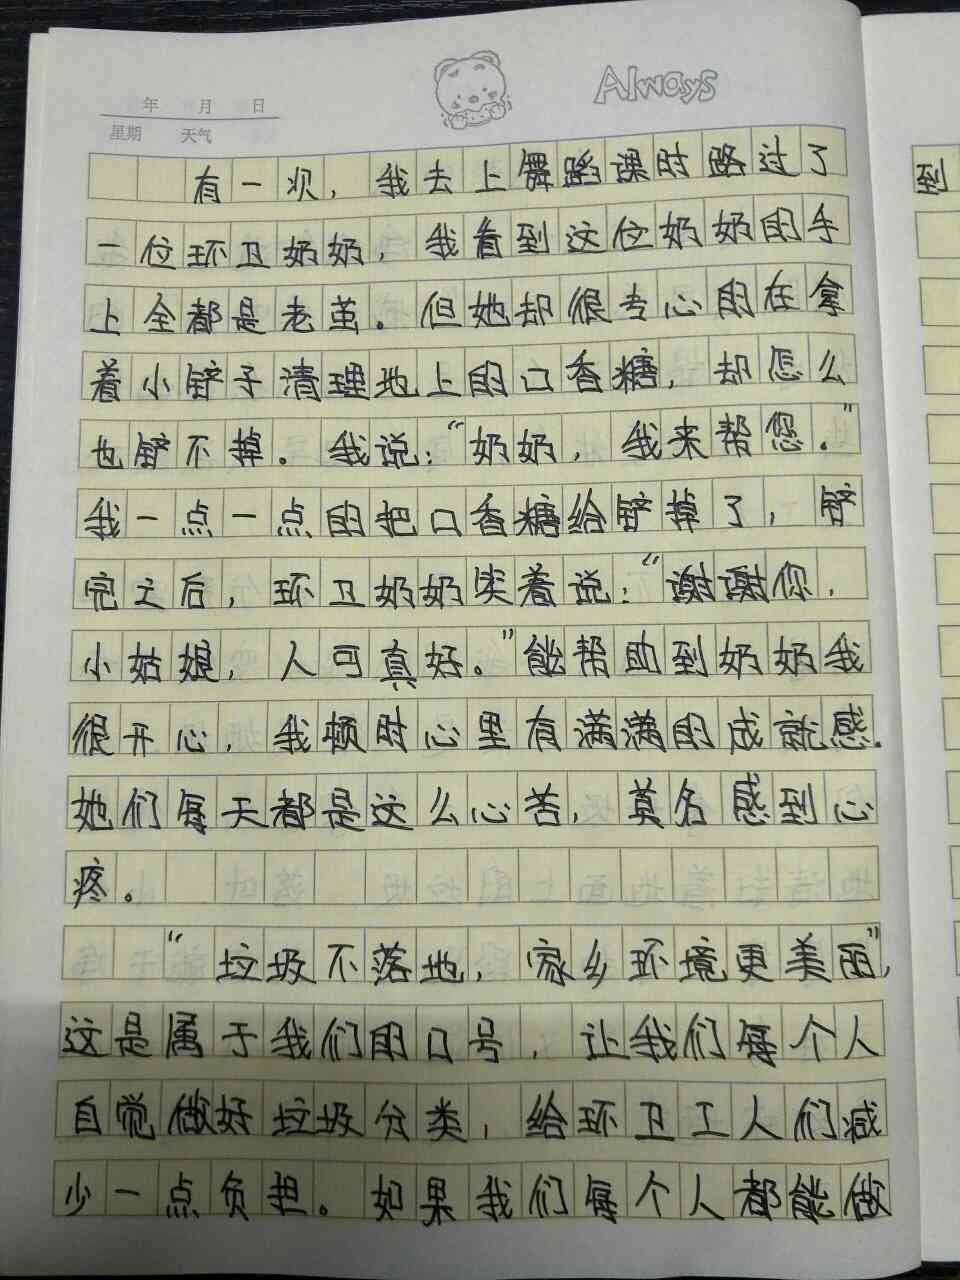 年 月 日
星期 天气
Always
有一次，我去上舞蹈课时路过了
一位环卫奶奶，我看到这位奶奶的手
上全都是老茧。但她却很专心的在拿
着小铲子清理地上的口香糖，却怎么
也铲不掉。我说：“奶奶，我来帮您。”
我一点一点的把口香糖给铲掉了，铲
完之后，环卫奶奶笑着说：“谢谢你，
小姑娘，人可真好。”能帮助到奶奶我
很开心，我顿时心里有满满的成就感。
她们每天都是这么心苦，莫名感到心
疼。
“垃圾不落地，家乡环境更美丽”，
这是属于我们的口号，让我们每个人
自觉做好垃圾分类，给环卫工人们减
少一点负担。如果我们每个人都能做
到